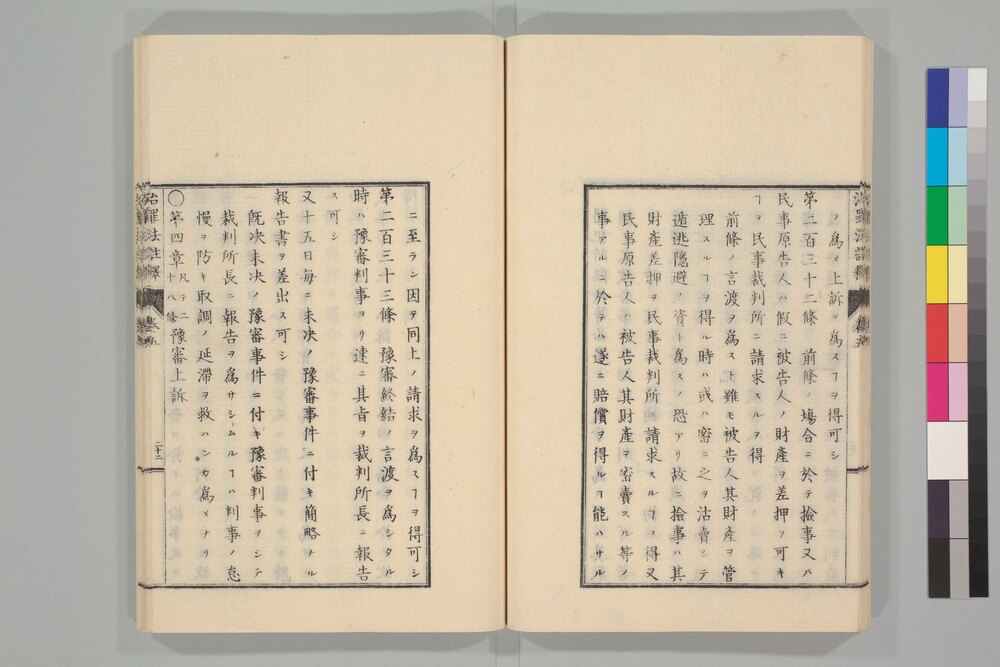 ノ爲メ上訴ヲ爲スヿヲ得可シ
第二百三十二條 前條ノ塲合ニ於テ撿事又ハ
民事原告人ハ假ニ被告人ノ財產ヲ差押フ可キ
ヿヲ民事裁判所ニ請求スルヲ得
前條ノ言渡ヲ爲スト雖モ被告人其財產ヲ管
理スルヿヲ得ル時ハ或ハ密ニ之ヲ沽賣シテ
遁逃隱避ノ資ト爲スノ恐アリ故ニ撿事ハ其
財產差押ヲ民事裁判所ニ請求スルヿヲ得又
民事原告人ハ被告人其財產ヲ密賣スル等ノ
事アルニ於テハ遂ニ賠償ヲ得ルヿ能ハサル
治罪法註釋 卷五
ニ至ラン因テ同上ノ請求ヲ爲スヿヲ得可シ
第二百三十三條 豫審終結ノ言渡ヲ爲シタル
時ハ豫審判事ヨリ速ニ其旨ヲ裁判所長ニ報告
ス可シ
又十五日每ニ未决ノ豫審事件ニ付キ簡略ナル
報告書ヲ差出ス可シ
旣决未决ノ豫審事件ニ付キ豫審判事ヲシテ
裁判所長ニ報告ヲ爲サシムルヿハ判事ノ怠
慢ヲ防キ取調ノ延滯ヲ救ハンカ爲メナリ
〇第四章 凡テ二十八條 豫審上訴
治罪法註釋 卷五 二十二